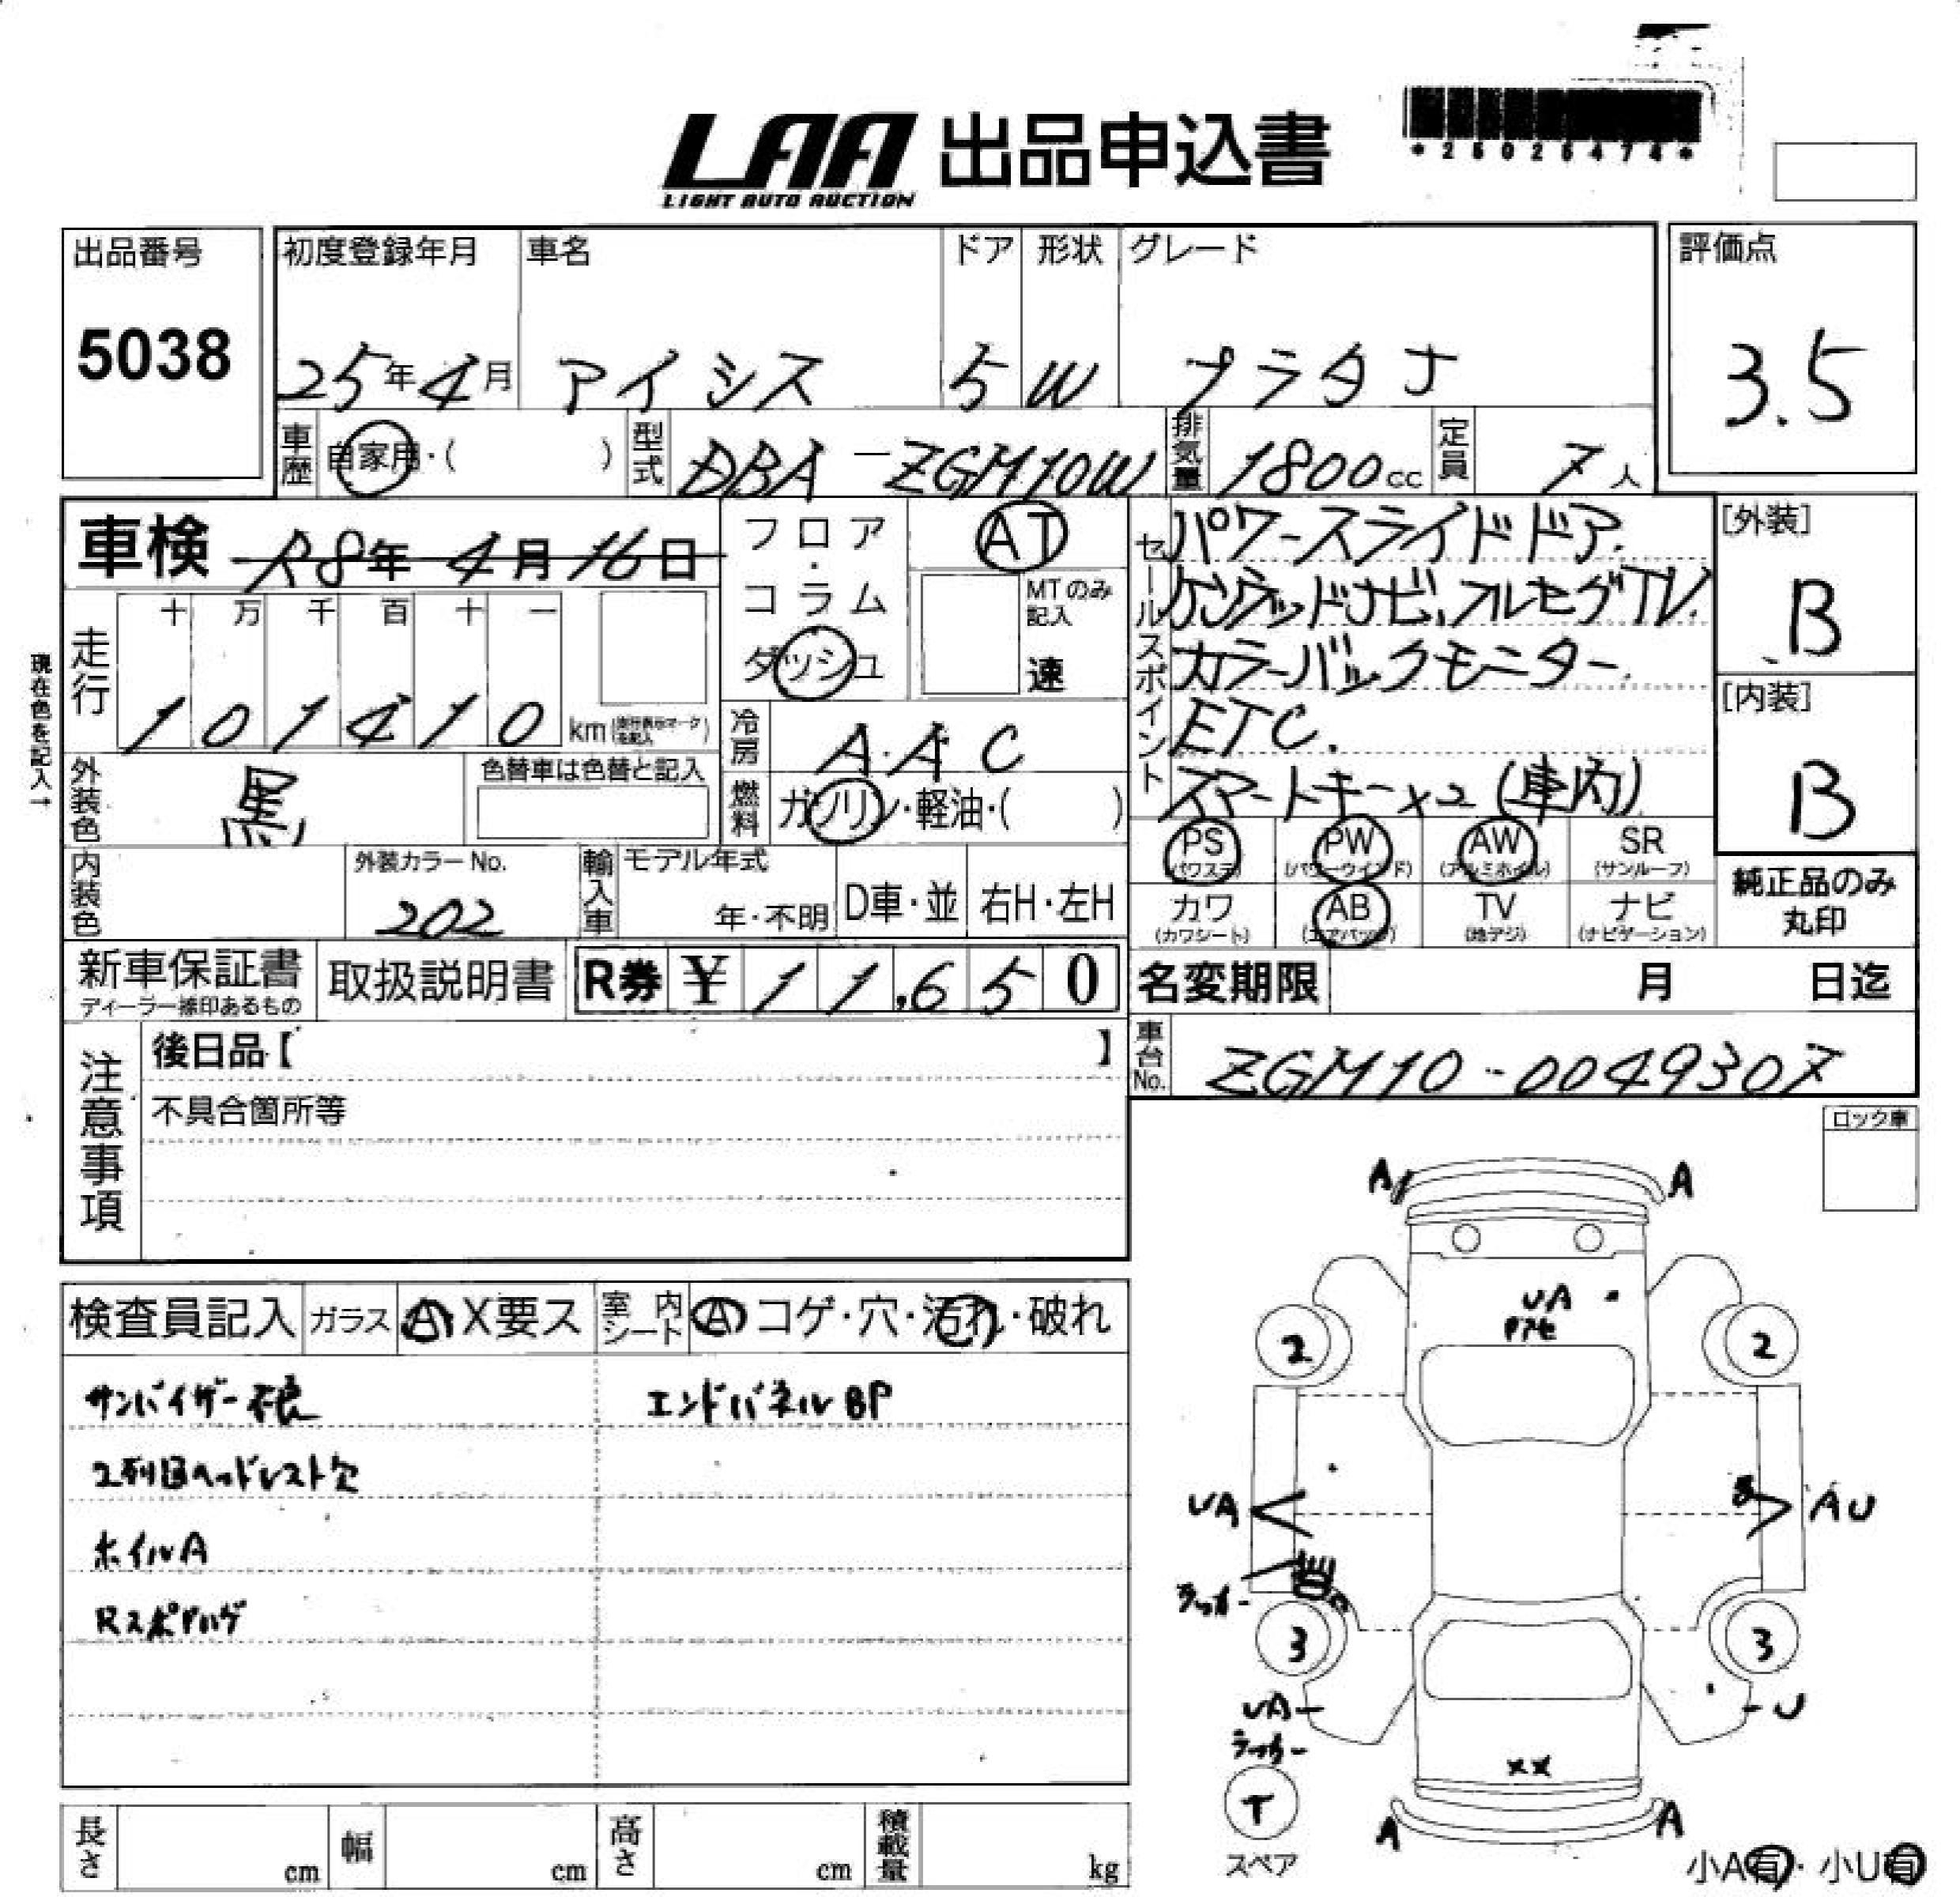 LAA 出品申込書
LIGHT AUTO AUCTION
出品番号
5038
初度登録年月
25年4月
車名
アイシス
ドア
5
形状
W
グレード
プラタナ
評価点
3.5
車歴
自家用・( )
型式
DBA-ZGM10W
排気量
1800cc
定員
7人
車検 R8年 4月16日
フロア・コラム
ダッシュ
AT
MTのみ記入
速
現在色を記入→
走行
十 万 千 百 十 一
1 0 1 4 1 0 km
外装色
黒
色替車は色替と記入
冷房
A.A C
燃料
ガソリン・軽油・( )
内装色
外装カラーNo.
202
輸入車
モデル年式
年・不明
D車・並
右H・左H
新車保証書
ディーラー捺印あるもの
取扱説明書
R券 ¥ 1 1,6 5 0
セールスポイント
パワースライドドア.
ケンウッドナビ,フルセグTV.
カラーバックモニター.
ETC.
スマートキー×2(車内)
PS
(パワステ)
PW
(パワーウインド)
AW
(アルミホイル)
SR
(サンルーフ)
カワ
(カワシート)
AB
(エアバッグ)
TV
(地デジ)
ナビ
(ナビゲーション)
[外装]
B
[内装]
B
純正品のみ
丸印
名変期限 月 日迄
車台No.
ZGM10-0049307
注意事項
後日品【 】
不具合箇所等
ロック車
検査員記入
ガラス
A X要ス
室内シート
A コゲ・穴・汚れ・破れ
サンバイザー不良
エンドパネルBP
2列目ヘッドレスト欠
ホイルA
RスポPハゲ
A A
UA
2 2
UA
AU
ラッカー
3 3
UA
U
ラッカー
XX
T
スペア
A A
小A有・小U有
長さ cm
幅 cm
高さ cm
積載量 kg